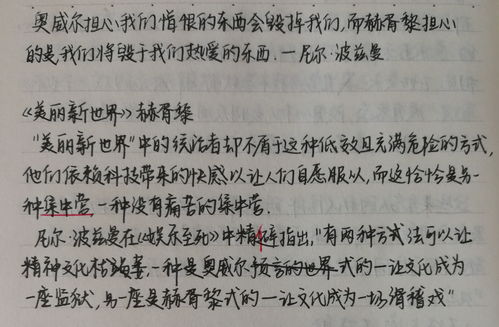 奥威尔担心我们憎恨的东西会毁掉我们,而赫胥黎担心
的是,我们将毁于我们热爱的东西.—尼尔·波兹曼
《美丽新世界》赫胥黎
"美丽新世界"中的统治者却不屑于这种低效且充满危险的方式,
他们依赖科技带来的快感以让人们自愿服从,而这恰恰是另一
种集中营,一种没有痛苦的集中营.
尼尔·波兹曼在《娱乐至死》中精辟指出,"有两种方法可以让
精神文化枯萎,一种是奥威尔式的—让文化成为
一座监狱,另一座是赫胥黎式的—让文化成为一场滑稽戏"